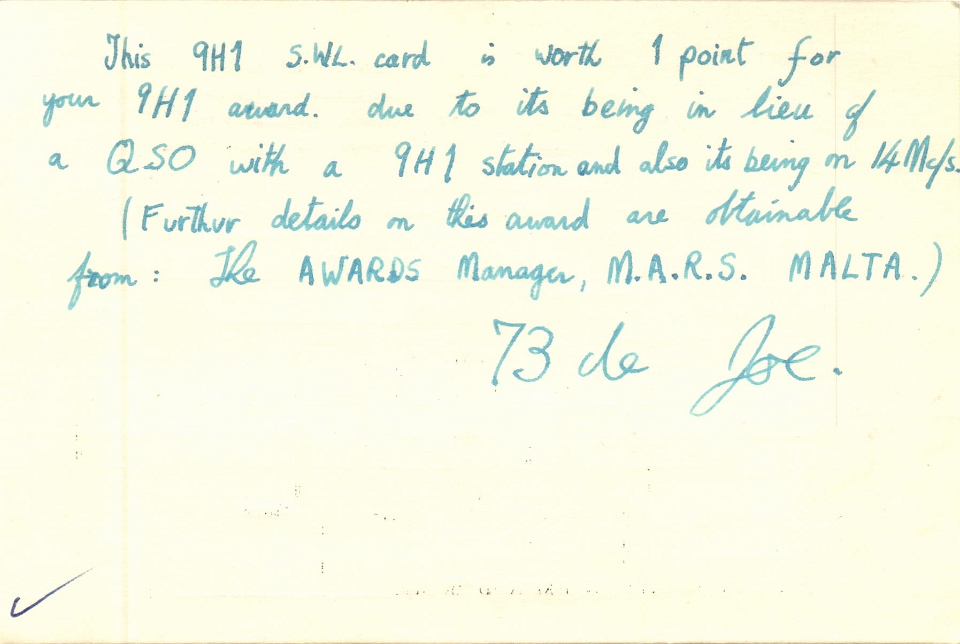 This 9H1 S.WL. card is worth 1 point for
your 9H1 award. due to its being in lieu of
a QSO with a 9H1 station and also its being on 14Mc/s.
(Furthur details on this award are obtainable
from: The AWARDS Manager, M.A.R.S. MALTA.)
73 de Joe.